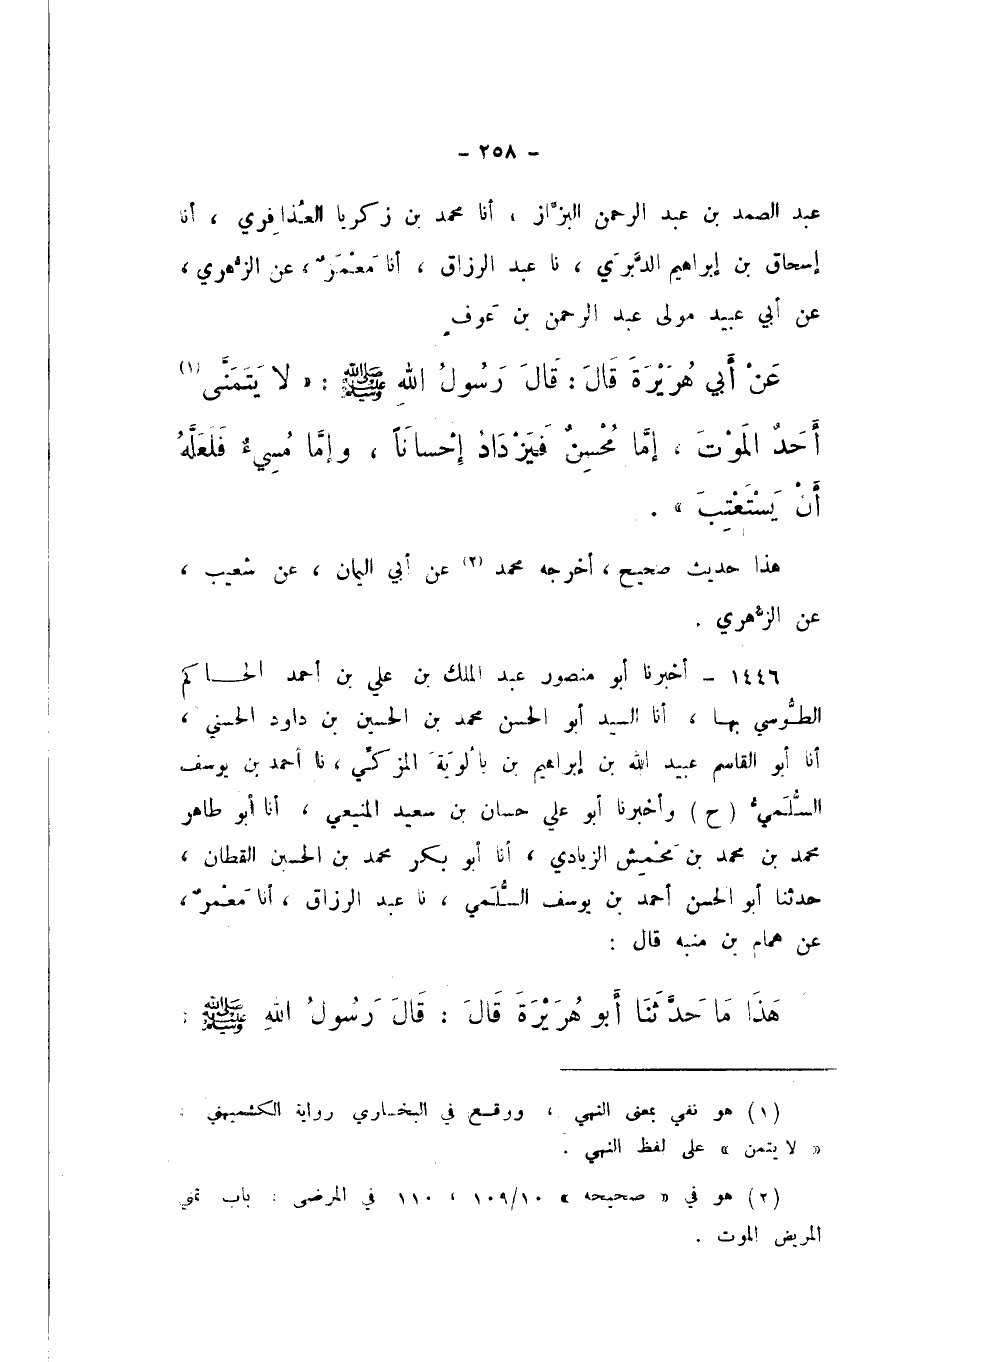 - ٢٥٨ -
عبد الصمد بن عبد الرحمن البزَّاز ، أنا محمد بن زكريا العُذافِري ، أنا
إسحاق بن إبراهيم الدَّبَري ، نا عبد الرزاق ، أنا مَعْمَرٌ ، عن الزُّهري ،
عن أبي عبيد مولى عبد الرحمن بن عَوفٍ
عَنْ أَبي هُرَيْرَةَ قَالَ : قَالَ رَسُولُ اللهِ ﷺ : « لا يَتَمَنَّى (١)
أَحَدٌ المَوْتَ ، إِمَّا مُحْسِنٌ فَيَزْدَادُ إِحْسانَاً ، وإِمَّا مُسِيءٌ فَلَعَلَّهُ
أَنْ يَسْتَعْتِبَ » .
هذا حديث صحيح ، أخرجه محمد (٢) عن أبي اليمان ، عن شعيب ،
عن الزُّهري .
١٤٤٦ - أخبرنا أبو منصور عبد الملك بن علي بن أحمد الحـــاكم
الطُّوسي بهـا ، أنا السيد أبو الحسن محمد بن الحسين بن داود الحسني ،
أنا أبو القاسم عبيد الله بن إبراهيم بن بالُويَةَ المزكِّي ، نا أحمد بن يوسف
السُّلَميُّ ( ح ) وأخبرنا أبو علي حسان بن سعيد المنيعي ، أنا أبو طاهر
محمد بن محمد بن مَحْمِش الزيادي ، أنا أبو بكر محمد بن الحسين القطان ،
حدثنا أبو الحسن أحمد بن يوسف السُّلَمي ، نا عبد الرزاق ، أنا مَعْمرٌ ،
عن همام بن منبه قال :
هَذَا مَا حَدَّثَنَا أَبو هُرَيْرَةَ قَالَ : قَالَ رَسُولُ اللهِ ﷺ :
(١) هو نفي بمعنى النهي ، ووقـع في البخـاري رواية الكشميهني :
« لا يتمن » على لفظ النهي .
(٢) هو في « صحيحه » ١٠٩/١٠ ، ١١٠ في المرضى : باب تمني
المريض الموت .